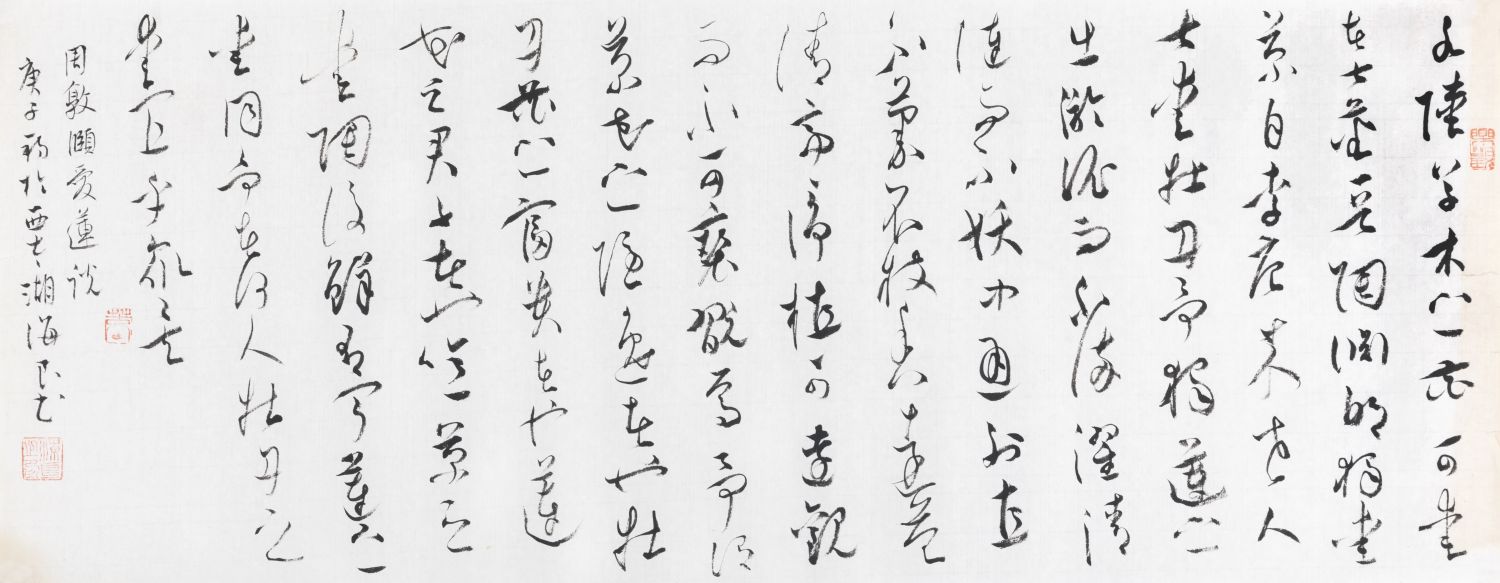 水陸草木之花可愛
者甚蕃晉陶淵明獨愛
菊自李唐來世人
甚愛牡丹予獨蓮之
出淤泥而不染濯清
漣而不妖中通外直
不蔓不枝香遠益
清亭亭淨植可遠觀
而不可褻翫焉予謂
菊花之隱逸者也牡
丹花之富貴者也蓮
花之君子者也噫菊之
愛陶後鮮有聞蓮之
愛同予者何人牡丹之
愛宜乎眾矣
周敦頤愛蓮說
庚子於湖海民书